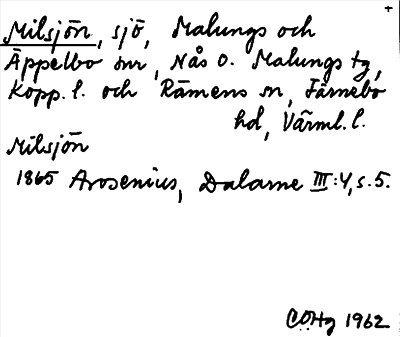 Milsjön, sjö, Malungs och
Äppelbo snr, Nås o. Malungs tg,
Kopp. l. och Rämens sn, Färnebo
hd, Värml. l.
Milsjön
1865 Arosenius, Dalarne III:4, s. 5.
COHg 1962